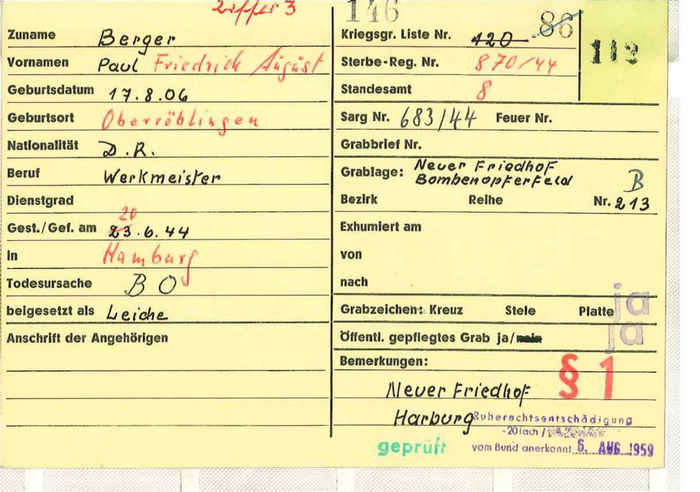 Ziffer 3
146
Zuname Berger
Vornamen Paul Friedrich August
Geburtsdatum 17.8.06
Geburtsort Oberröblingen
Nationalität D.R.
Beruf Werkmeister
Dienstgrad
20
Gest./Gef. am 23.6.44
in Hamburg
Todesursache BO
beigesetzt als Leiche
Anschrift der Angehörigen
Kriegsgr. Liste Nr. 120 86
112
Sterbe-Reg. Nr. 870/44
Standesamt 8
Sarg Nr. 683/44 Feuer Nr.
Grabbrief Nr.
Grablage: Neuer Friedhof
Bombenopferfeld B
Bezirk Reihe Nr. 213
Exhumiert am
von
nach
Grabzeichen: Kreuz Stele Platte ja
Öffentl. gepflegtes Grab ja/nein ja
Bemerkungen: § 1
Neuer Friedhof
Harburg
Ruherechtsentschädigung
-20fach/
vom Bund anerkannt 6. AUG. 1959
geprüft